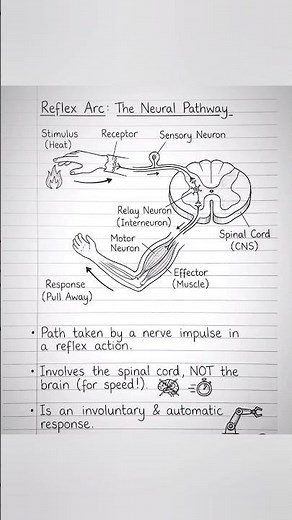 Reflex Arc: The Neural Pathway
Stimulus
(Heat)
Receptor
Sensory Neuron
Relay Neuron
(Interneuron)
Spinal Cord
(CNS)
Motor
Neuron
Effector
(Muscle)
Response
(Pull Away)
• Path taken by a nerve impulse in
a reflex action.
• Involves the spinal cord, NOT the
brain (for speed!).
• Is an involuntary & automatic
response.